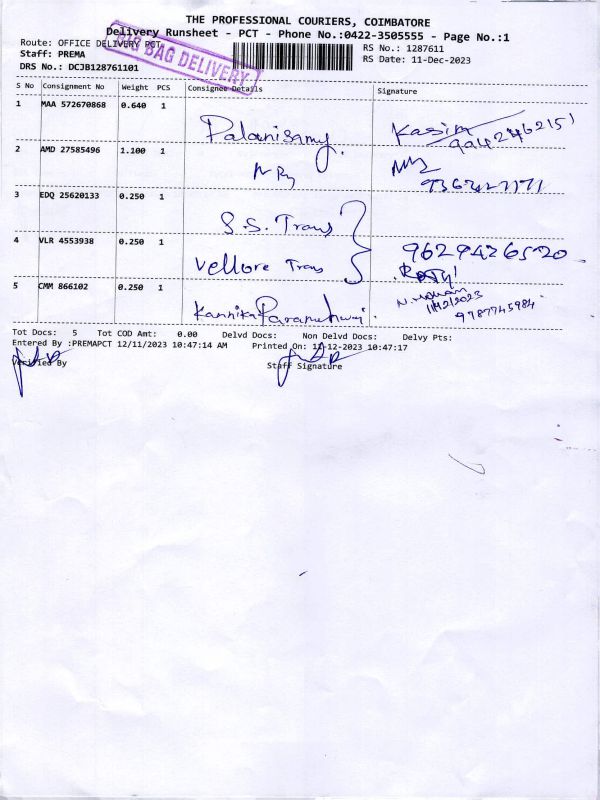 THE PROFESSIONAL COURIERS, COIMBATORE
Delivery Runsheet - PCT - Phone No.:0422-3505555 - Page No.:1
BIG BAG DELIVERY
Route: OFFICE DELIVERY PCT
RS No.: 1287611
Staff: PREMA
RS Date: 11-Dec-2023
DRS No.: DCJB128761101
S No Consignment No Weight PCS Consignee Details Signature
1 MAA 572670868 0.640 1
Palanisamy Kasim
9042462151
2 AMD 27585496 1.100 1
9367427171
3 EDQ 25620133 0.250 1
S.S. Trans
4 VLR 4553938 0.250 1
9629426520
Vellore Trans
5 CMM 866102 0.250 1
11/12/2023
Kannika Parameshwari 9787745984
Tot Docs: 5 Tot COD Amt: 0.00 Delvd Docs: Non Delvd Docs: Delvy Pts:
Entered By :PREMAPCT 12/11/2023 10:47:14 AM Printed On: 11-12-2023 10:47:17
Verified By Staff Signature